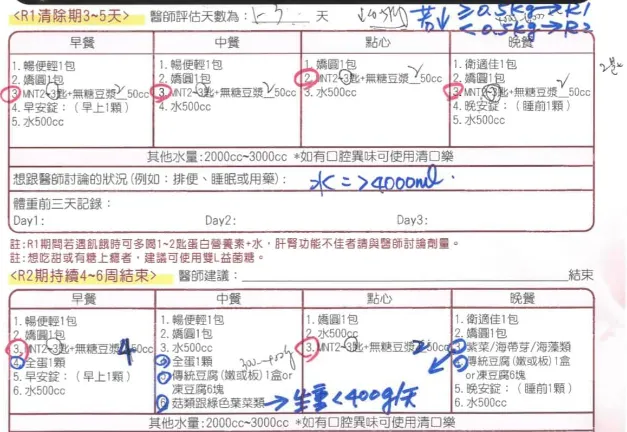 <R1清除期3~5天> 醫師評估天數為: 3-5 天 若↓ ≥0.5kg→R1
<0.5kg→R2
早餐 中餐 點心 晚餐
1.暢便輕1包
2.嬌圓1包
3.MNT2~3匙+無糖豆漿__50cc
4.早安錠:(早上1顆)
5.水500cc
1.暢便輕1包
2.嬌圓1包
3.MNT2~3匙+無糖豆漿2 50cc
4.水500cc
1.嬌圓1包
2.MNT2~3匙+無糖豆漿2 50cc
3.水500cc
1.衛適佳1包
2.嬌圓1包
3.MNT2~3匙+無糖豆漿__50cc
4.晚安錠:(睡前1顆)
5.水500cc
其他水量:2000cc~3000cc *如有口腔異味可使用清口樂
想跟醫師討論的狀況(例如:排便、睡眠或用藥): 水=>4000ml.
體重前三天記錄:
Day1: Day2: Day3:
註:R1期間若遇飢餓時可多喝1~2匙蛋白營養素+水,肝腎功能不佳者請與醫師討論劑量。
註:想吃甜或有糖上癮者,建議可使用雙L益菌糖。
<R2期持續4~6周結束> 醫師建議: 結束
早餐 中餐 點心 晚餐
1.暢便輕1包
2.嬌圓1包
3.MNT2~3匙+無糖豆漿4 50cc
4.全蛋1顆
5.早安錠:(早上1顆)
6.水500cc
1.暢便輕1包
2.嬌圓1包
3.水500cc
4.全蛋1顆
5.傳統豆腐(嫩或板)1盒or
凍豆腐6塊
6.菇類跟綠色葉菜類→生重<400g/天
1.嬌圓1包
2.水500cc
3.MNT2~3匙+無糖豆漿2 50cc
1.衛適佳1包
2.嬌圓1包
3.紫菜/海帶芽/海藻類
4.傳統豆腐(嫩或板)1盒
or凍豆腐6塊
5.晚安錠:(睡前1顆)
6.水500cc
其他水量:2000cc~3000cc *如有口腔異味可使用清口樂